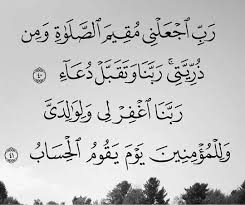 رَبِّ ٱجْعَلْنِى مُقِيمَ ٱلصَّلَوٰةِ وَمِن
ذُرِّيَّتِى ۚ رَبَّنَا وَتَقَبَّلْ دُعَآءِ ٤٠
رَبَّنَا ٱغْفِرْ لِى وَلِوَٰلِدَىَّ
وَلِلْمُؤْمِنِينَ يَوْمَ يَقُومُ ٱلْحِسَابُ ٤١